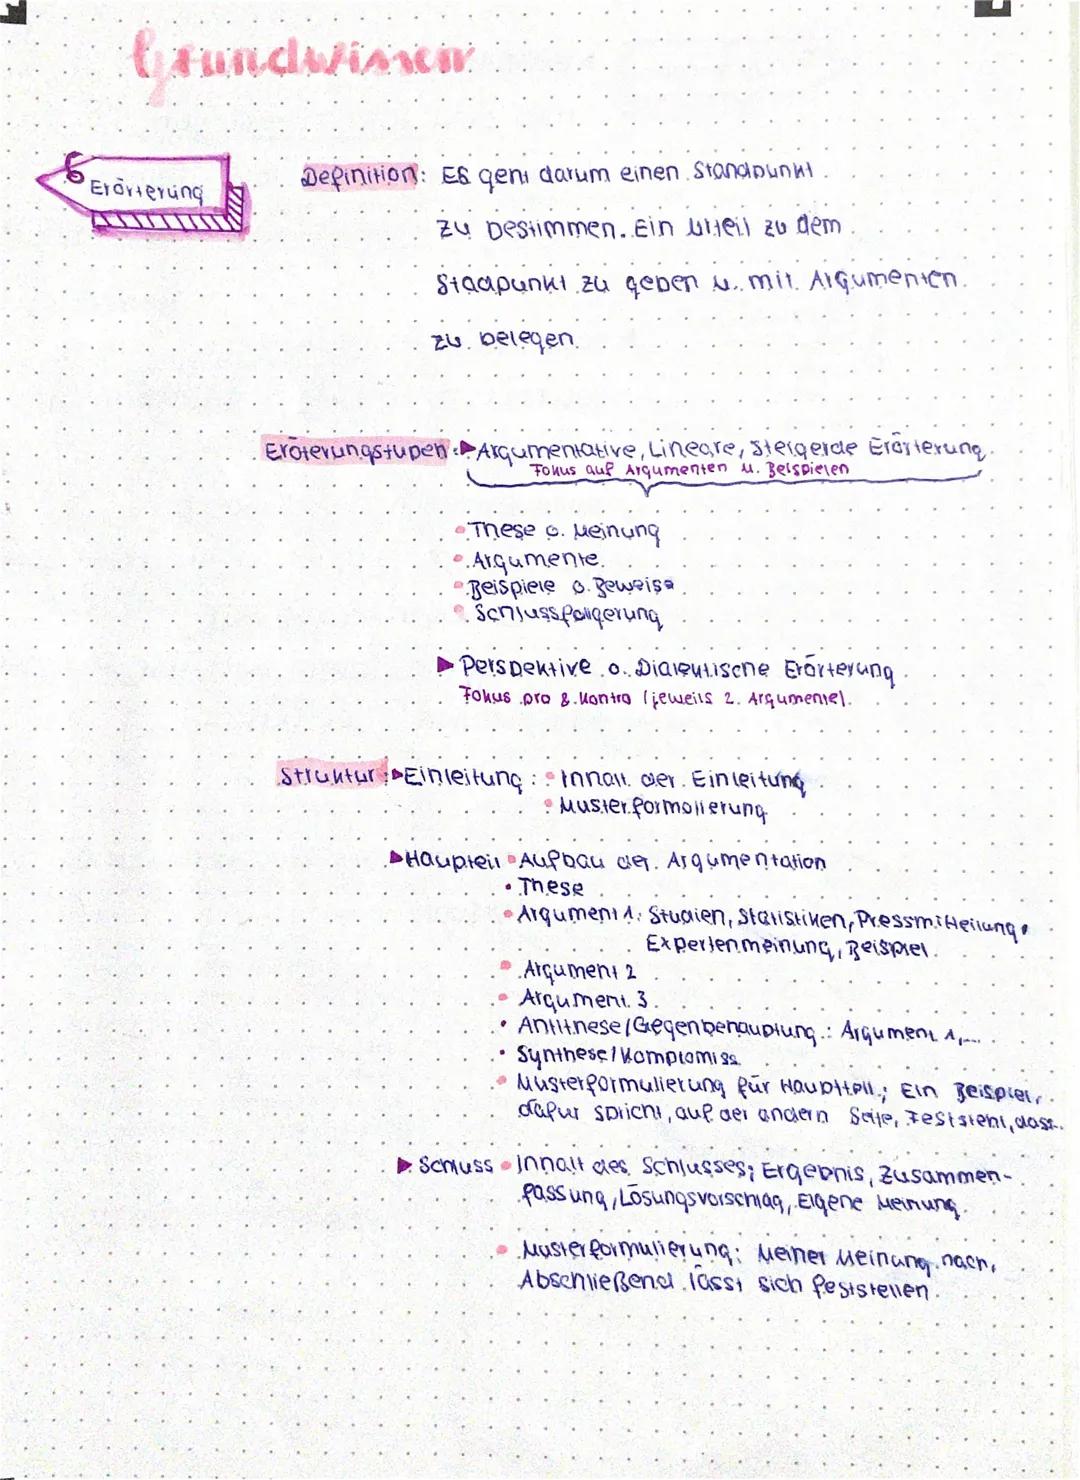 Grundwissen
Erörterung
Definition: Es geht darum einen Standpunkt
zu bestimmen. Ein Urteil zu dem
Stadpunkt zu geben u. mit Argumenten
zu belegen.
Eröterungstypen: Argumentative, Lineare, Steigerde Erörterung
Fokus auf Argumenten u. Beispielen
These o. Meinung
Argumente
Beispiele o. Beweise
Schlussfolgerung
Perspektive o. Dialektische Erörterung
Fokus pro & Kontra (jeweils 2. Argumente).
Struktur: Einleitung: Inhalt der Einleitung
Musterformolierung
Haupteil Aufbau der Argumentation
These
Argument 1: Studien, Statistiken, Pressmitteilung,
Expertenmeinung, Beispiel
Argument 2
Argument 3
Antithese/Gegenbehauptung: Argument 1,...
Synthese/Kompromiss
Musterformulierung für Hauptteil; Ein Beispiel,
dafür spricht, auf der andern Seite, Feststeht, dass..
Schluss Inhalt des Schlusses; Ergebnis, Zusammen-
fassung, Lösungsvorschlag, Eigene Meinung
Musterformulierung: Meiner Meinung nach,
Abschließend lässt sich feststellen.